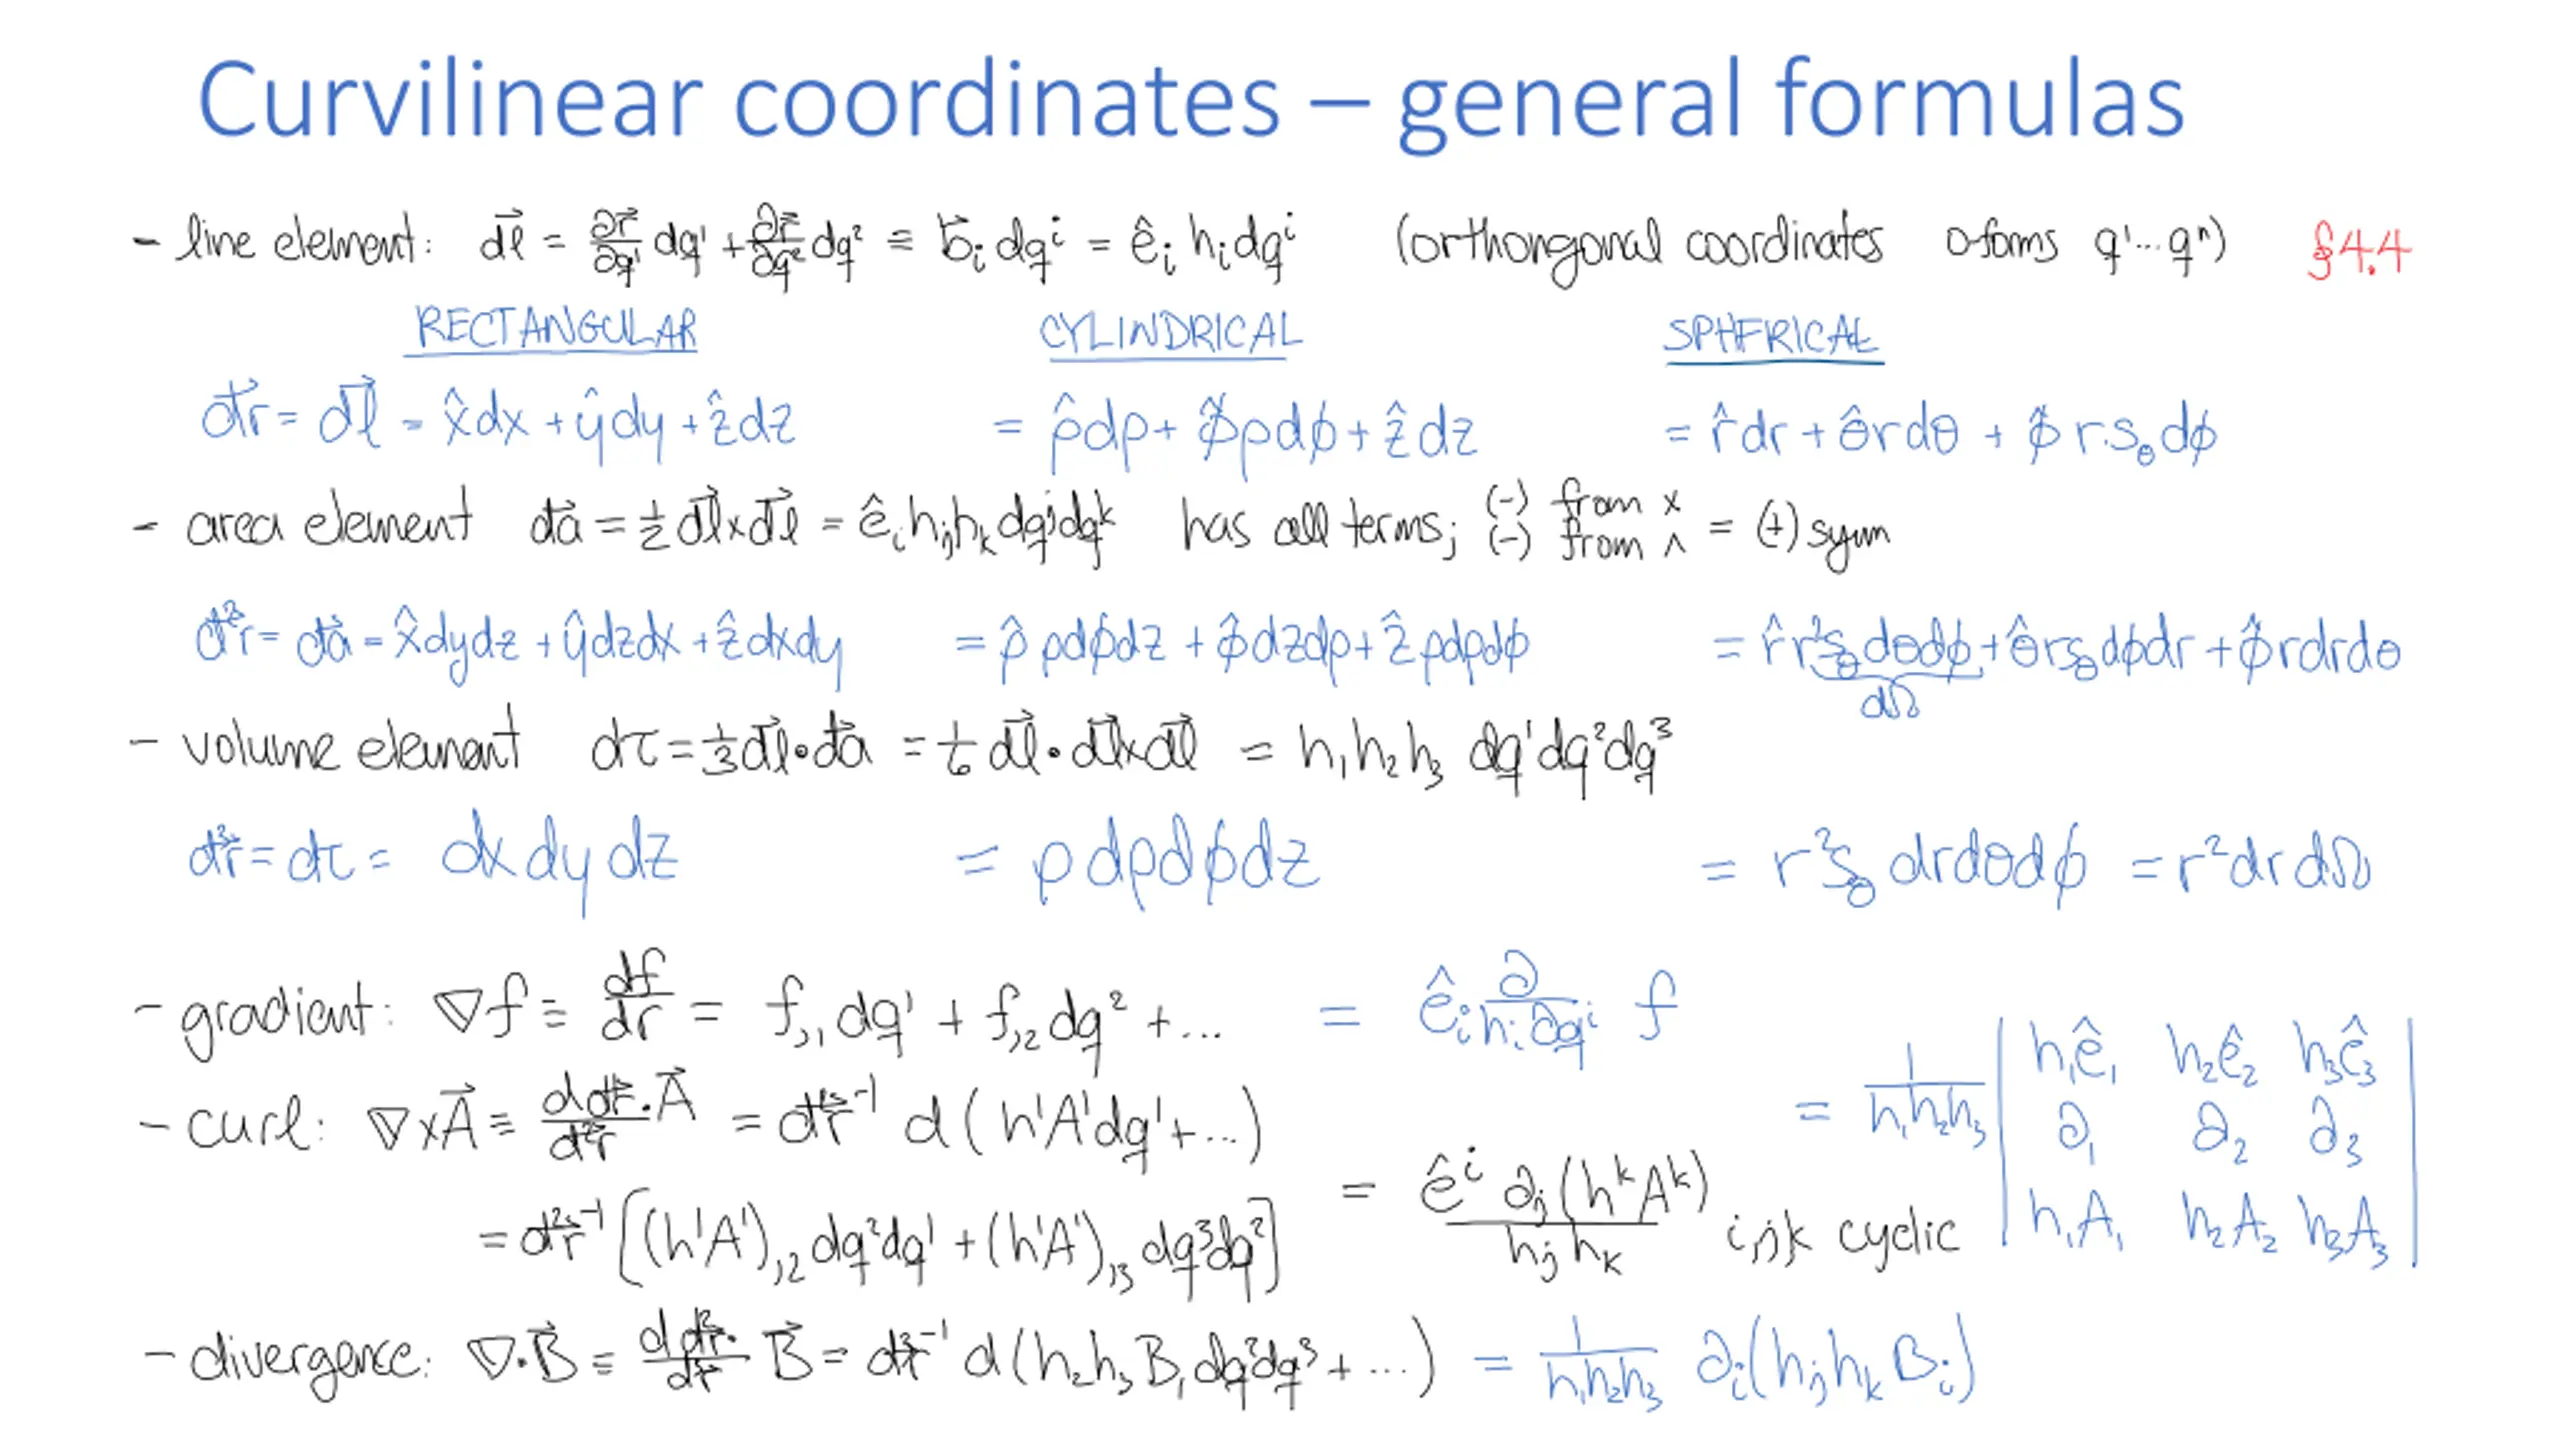 Curvilinear coordinates – general formulas
- line element: d⃗l = ∂r⃗/∂q¹ dq¹ + ∂r⃗/∂q² dq² = b⃗ᵢ dqⁱ = êᵢ hᵢ dqⁱ (orthongonal coordinates 0-forms q¹...qⁿ) §4.4
RECTANGULAR CYLINDRICAL SPHERICAL
d⃗r = d⃗l = x̂dx + ŷdy + ẑdz = ρ̂dρ + φ̂ρdφ + ẑdz = r̂dr + θ̂rdθ + φ̂ r s_θ dφ
- area element d⃗a = ½ d⃗l × d⃗l = êᵢ hⱼhₖ dqʲdqᵏ has all terms; (-) from × (-) from ∧ = (+) sym
d²⃗r = d⃗a = x̂dydz + ŷdzdx + ẑdxdy = ρ̂ ρdφdz + φ̂dzdρ + ẑρdρdφ = r̂r²s_θ dθdφ + θ̂rs_θ dφdr + φ̂rdrdθ
dΩ
- volume element dτ = ⅓ d⃗l·d⃗a = ⅙ d⃗l·d⃗l×d⃗l = h₁h₂h₃ dq¹dq²dq³
d³r = dτ = dx dy dz = ρ dρdφdz = r²s_θ drdθdφ = r²dr dΩ
- gradient: ∇f ≡ df/dr = f,₁ dq¹ + f,₂ dq² + ... = êᵢ ∂/hᵢ∂qⁱ f
- curl: ∇×A⃗ ≡ d d⃗r·A⃗ / d²⃗r = d²⃗r⁻¹ d(h¹A¹dq¹+...) = 1/h₁h₂h₃ | h₁ê₁ h₂ê₂ h₃ê₃ |
| ∂₁ ∂₂ ∂₃ |
| h₁A₁ h₂A₂ h₃A₃ |
= d²⃗r⁻¹ [(h¹A¹),₂ dq²dq¹ + (h¹A¹),₃ dq³dq²] = êⁱ ∂ⱼ(hᵏAᵏ) / hⱼhₖ ijk cyclic
- divergence: ∇·B⃗ ≡ d d²⃗r· / d³r B⃗ = d³r⁻¹ d(h₂h₃B₁dq²dq³ + ...) = 1/h₁h₂h₃ ∂ᵢ(hⱼhₖBᵢ)